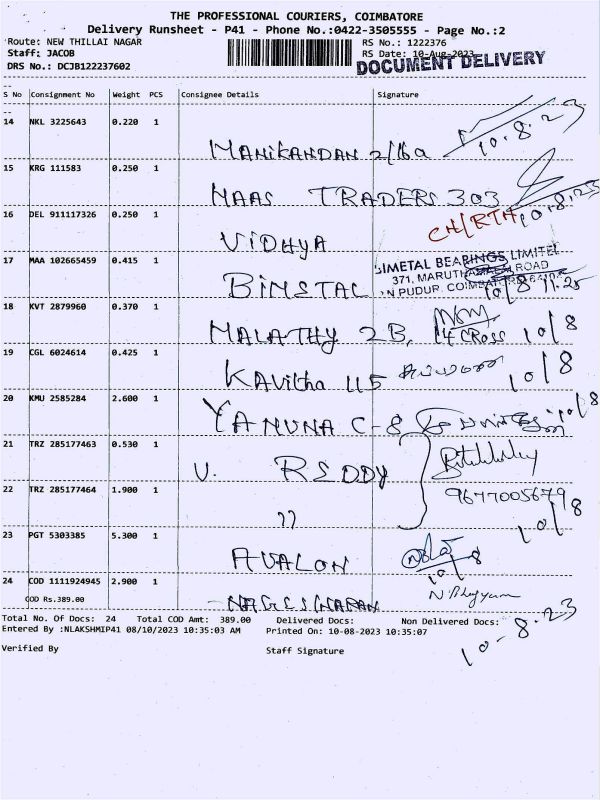 THE PROFESSIONAL COURIERS, COIMBATORE
Delivery Runsheet - P41 - Phone No.:0422-3505555 - Page No.:2
Route: NEW THILLAI NAGAR RS No.: 1222376
Staff: JACOB RS Date: 10-Aug-2023
DRS No.: DCJB122237602 DOCUMENT DELIVERY
S No Consignment No Weight PCS Consignee Details Signature
14 NKL 3225643 0.220 1
MANIKANDAN 2/16a 10.8.23
15 KRG 111583 0.250 1
MAAS TRADERS 303 10.8.23
16 DEL 911117326 0.250 1 CH/RTH
VIDHYA
17 MAA 102665459 0.415 1 BIMETAL BEARINGS LIMITED
371, ROAD
N PUDUR, COIMBATORE
BIMETAL 10/8 11.25
18 KVT 2879960 0.370 1
MALATHY 2B, 14 CROSS 10/8
19 CGL 6024614 0.425 1
KAVitha 115 10/8
20 KMU 2585284 2.600 1
YAMUNA C-8 10/8
21 TRZ 285177463 0.530 1
V. REDDY
22 TRZ 285177464 1.900 1 9677005679
" 10/8
23 PGT 5303385 5.300 1
AVALON 10/8
24 COD 1111924945 2.900 1
COD Rs.389.00 NAGESWARAN
Total No. Of Docs: 24 Total COD Amt: 389.00 Delivered Docs: Non Delivered Docs:
Entered By :NLAKSHMIP41 08/10/2023 10:35:03 AM Printed On: 10-08-2023 10:35:07
10-8-23
Verified By Staff Signature